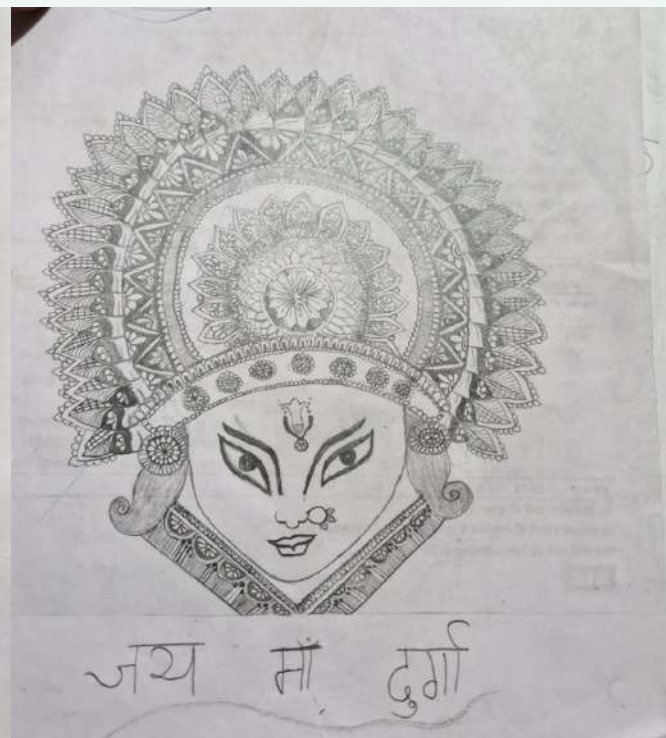 जय माँ दुर्गा